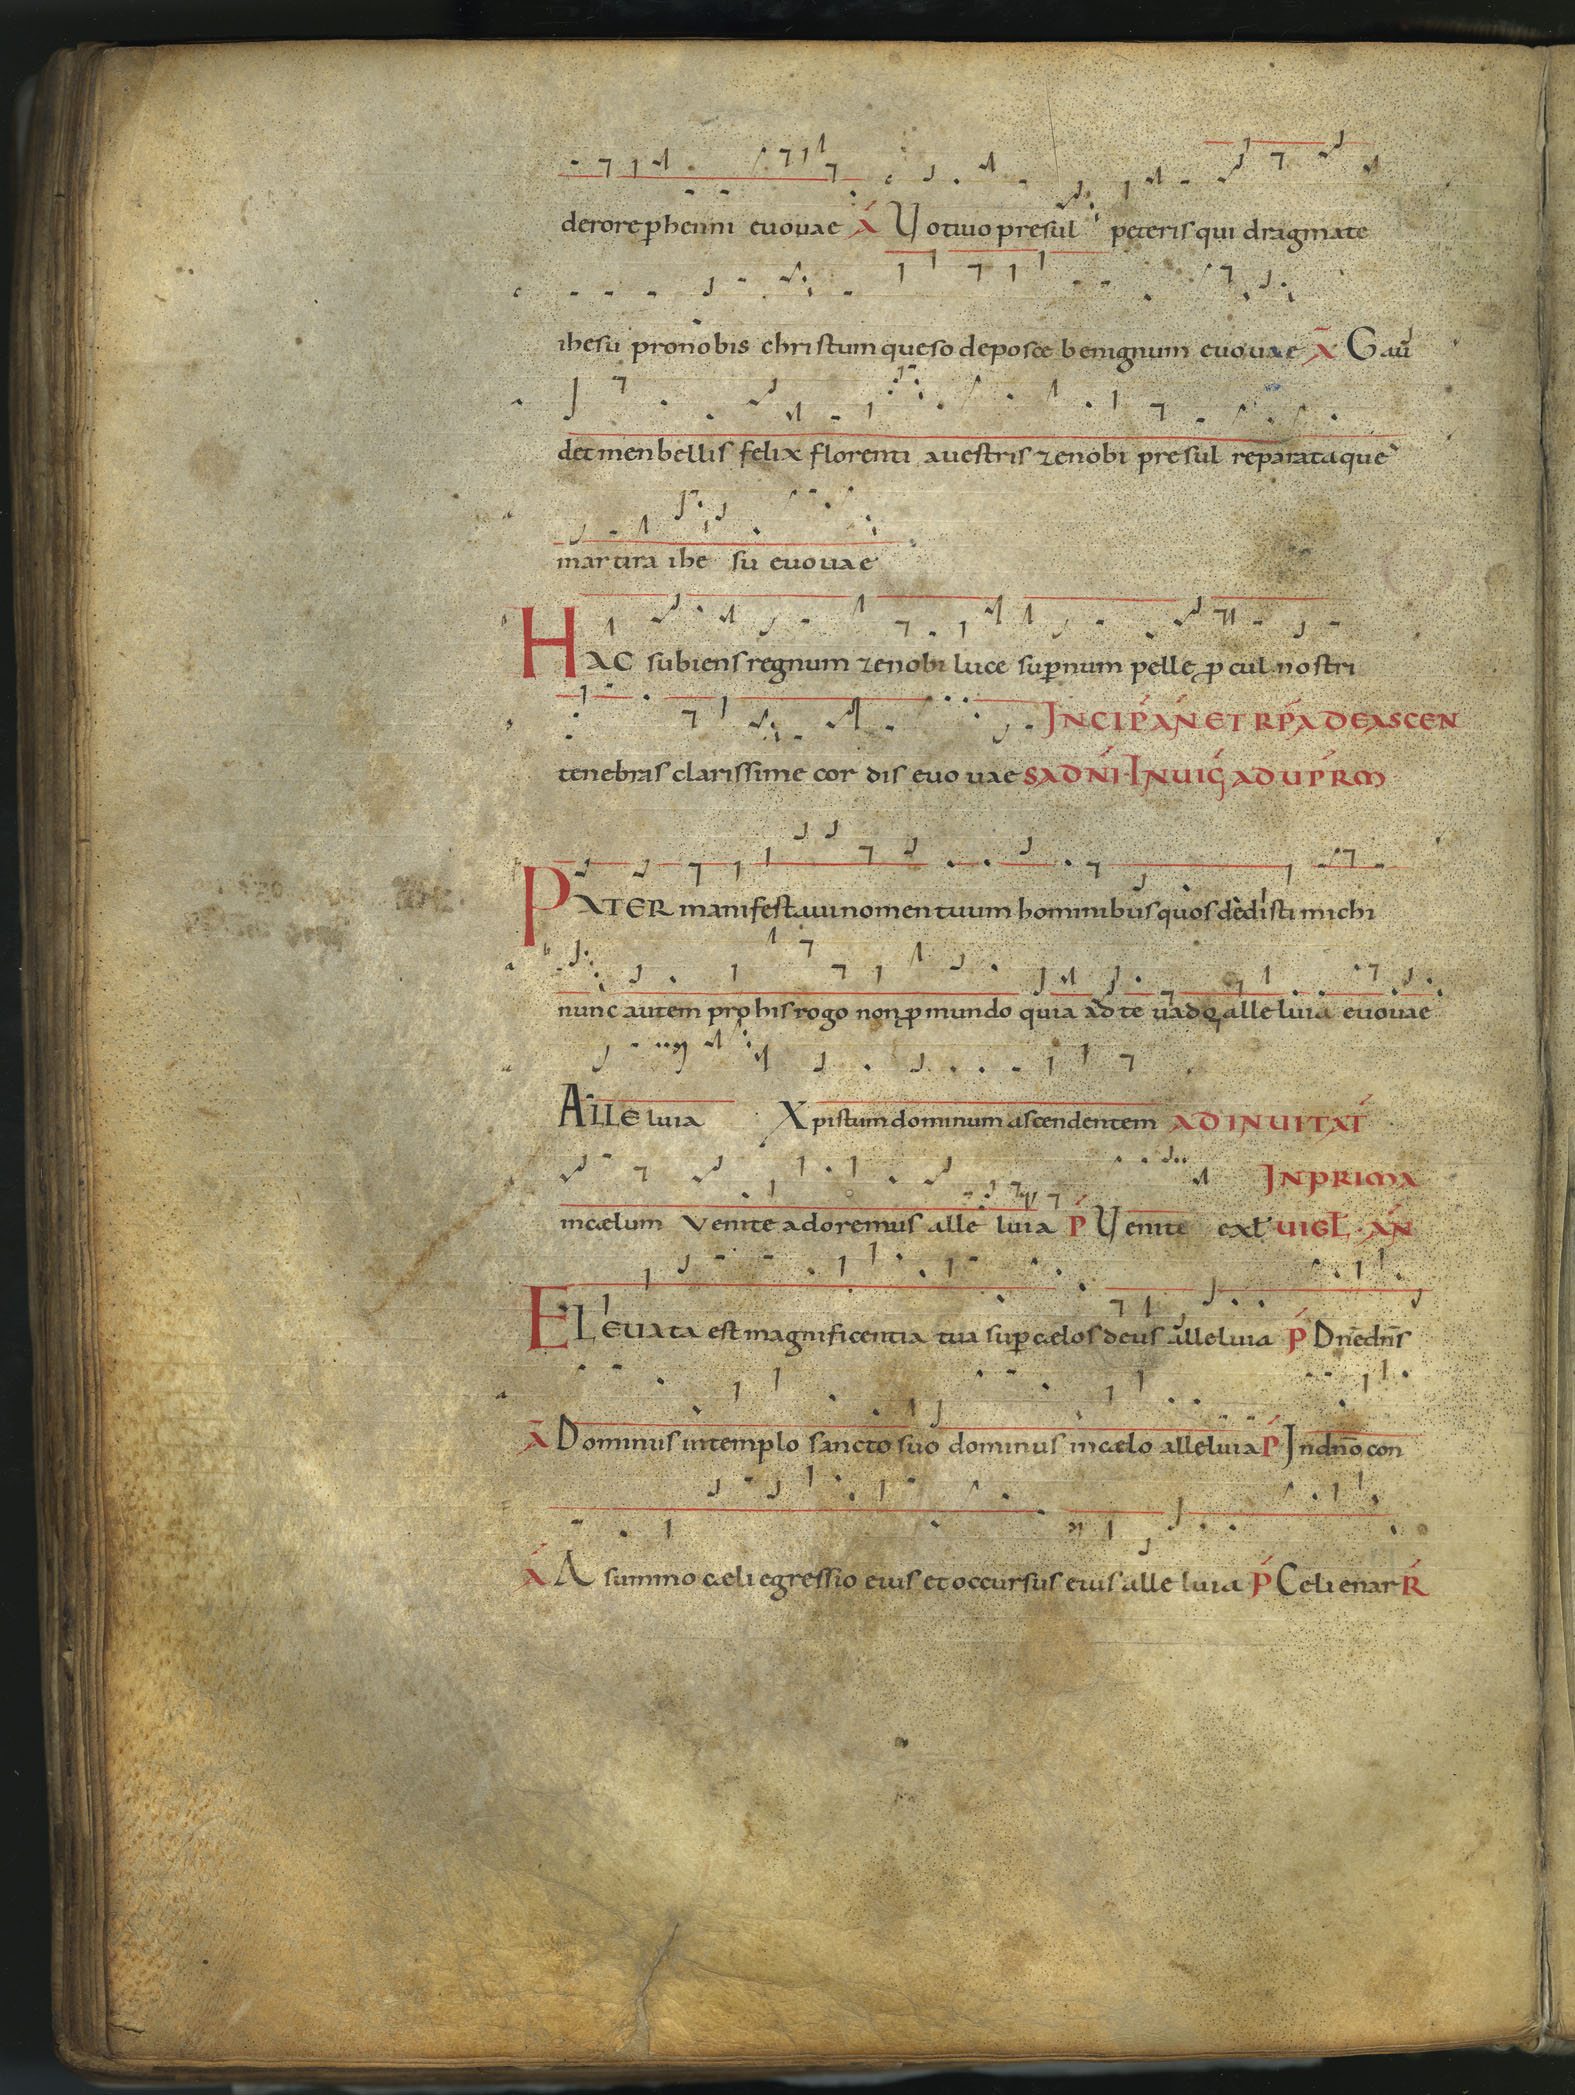 derore phenni euouae A Votiuo presul peteris qui dragmate
ihesu pro nobis christum queso deposce benignum euouae A Gau
det men bellis felix florenti a uestris zenobi presul reparataque
martira ihe su euouae
HAC subiens regnum zenobi luce supnum pelle pcul nostri
tenebras clarissime cor dis euo uae
INCIP AN ET RP A DE ASCEN
SA DNI INUIG AD UPRM
PATER manifestaui nomen tuum hominibus quos dedisti michi
nunc autem pro his rogo non p mundo quia ad te uado alle luia euouae
ALLE luia Xpistum dominum ascendentem AD INUITAT
in cælum Venite adoremus alle luia P Venite ext
IN PRIMA
UIGL AN
ELEuata est magnificentia tua sup cælos deus alleluia P Dne dns
A Dominus in templo sancto suo dominus in cælo alleluia P In dno con
A A summo cæli egressio eius et occursus eius alle luia P Celi enar R